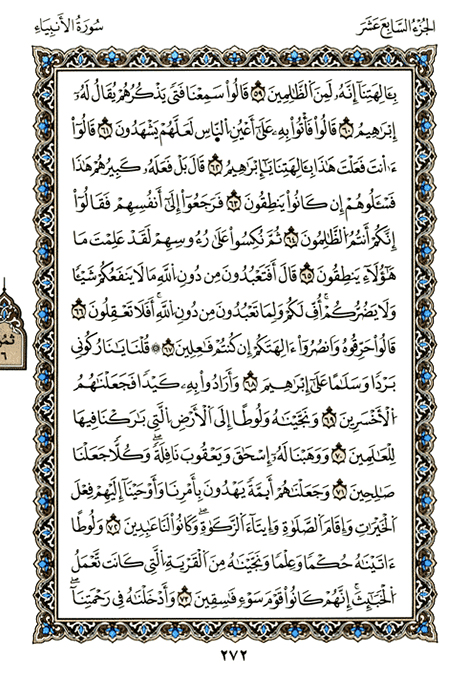 الجُزْءُ السَّابِعَ عَشَرَ
سُورَةُ الأَنبِيَاءِ
بِـَٔالِهَتِنَآ إِنَّهُۥ لَمِنَ ٱلظَّٰلِمِينَ ٥٩ قَالُواْ سَمِعْنَا فَتًى يَذْكُرُهُمْ يُقَالُ لَهُۥٓ
إِبْرَٰهِيمُ ٦٠ قَالُواْ فَأْتُواْ بِهِۦ عَلَىٰٓ أَعْيُنِ ٱلنَّاسِ لَعَلَّهُمْ يَشْهَدُونَ ٦١ قَالُوٓاْ
ءَا۬نتَ فَعَلْتَ هَٰذَا بِـَٔالِهَتِنَا يَٰٓإِبْرَٰهِيمُ ٦٢ قَالَ بَلْ فَعَلَهُۥ كَبِيرُهُمْ هَٰذَا
فَسْـَٔلُوهُمْ إِن كَانُواْ يَنطِقُونَ ٦٣ فَرَجَعُوٓاْ إِلَىٰٓ أَنفُسِهِمْ فَقَالُوٓاْ
إِنَّكُمْ أَنتُمُ ٱلظَّٰلِمُونَ ٦٤ ثُمَّ نُكِسُواْ عَلَىٰ رُءُوسِهِمْ لَقَدْ عَلِمْتَ مَا
هَٰٓؤُلَآءِ يَنطِقُونَ ٦٥ قَالَ أَفَتَعْبُدُونَ مِن دُونِ ٱللَّهِ مَا لَا يَنفَعُكُمْ شَيْـًٔا
وَلَا يَضُرُّكُمْ أُفِّ لَكُمْ وَلِمَا تَعْبُدُونَ مِن دُونِ ٱللَّهِ أَفَلَا تَعْقِلُونَ ٦٦
قَالُواْ حَرِّقُوهُ وَٱنصُرُوٓاْ ءَالِهَتَكُمْ إِن كُنتُمْ فَٰعِلِينَ ٦٧ ۞ قُلْنَا يَٰنَارُ كُونِى
بَرْدًا وَسَلَٰمًا عَلَىٰٓ إِبْرَٰهِيمَ ٦٨ وَأَرَادُواْ بِهِۦ كَيْدًا فَجَعَلْنَٰهُمُ
ٱلْأَخْسَرِينَ ٦٩ وَنَجَّيْنَٰهُ وَلُوطًا إِلَى ٱلْأَرْضِ ٱلَّتِى بَٰرَكْنَا فِيهَا
لِلْعَٰلَمِينَ ٧٠ وَوَهَبْنَا لَهُۥٓ إِسْحَٰقَ وَيَعْقُوبَ نَافِلَةً وَكُلًّا جَعَلْنَا
صَٰلِحِينَ ٧١ وَجَعَلْنَٰهُمْ أَئِمَّةً يَهْدُونَ بِأَمْرِنَا وَأَوْحَيْنَآ إِلَيْهِمْ فِعْلَ
ٱلْخَيْرَٰتِ وَإِقَامَ ٱلصَّلَوٰةِ وَإِيتَآءَ ٱلزَّكَوٰةِ وَكَانُواْ لَنَا عَٰبِدِينَ ٧٢ وَلُوطًا
ءَاتَيْنَٰهُ حُكْمًا وَعِلْمًا وَنَجَّيْنَٰهُ مِنَ ٱلْقَرْيَةِ ٱلَّتِى كَانَت تَّعْمَلُ
ٱلْخَبَٰٓئِثَ إِنَّهُمْ كَانُواْ قَوْمَ سَوْءٍ فَٰسِقِينَ ٧٣ وَأَدْخَلْنَٰهُ فِى رَحْمَتِنَآ
٢٧٢